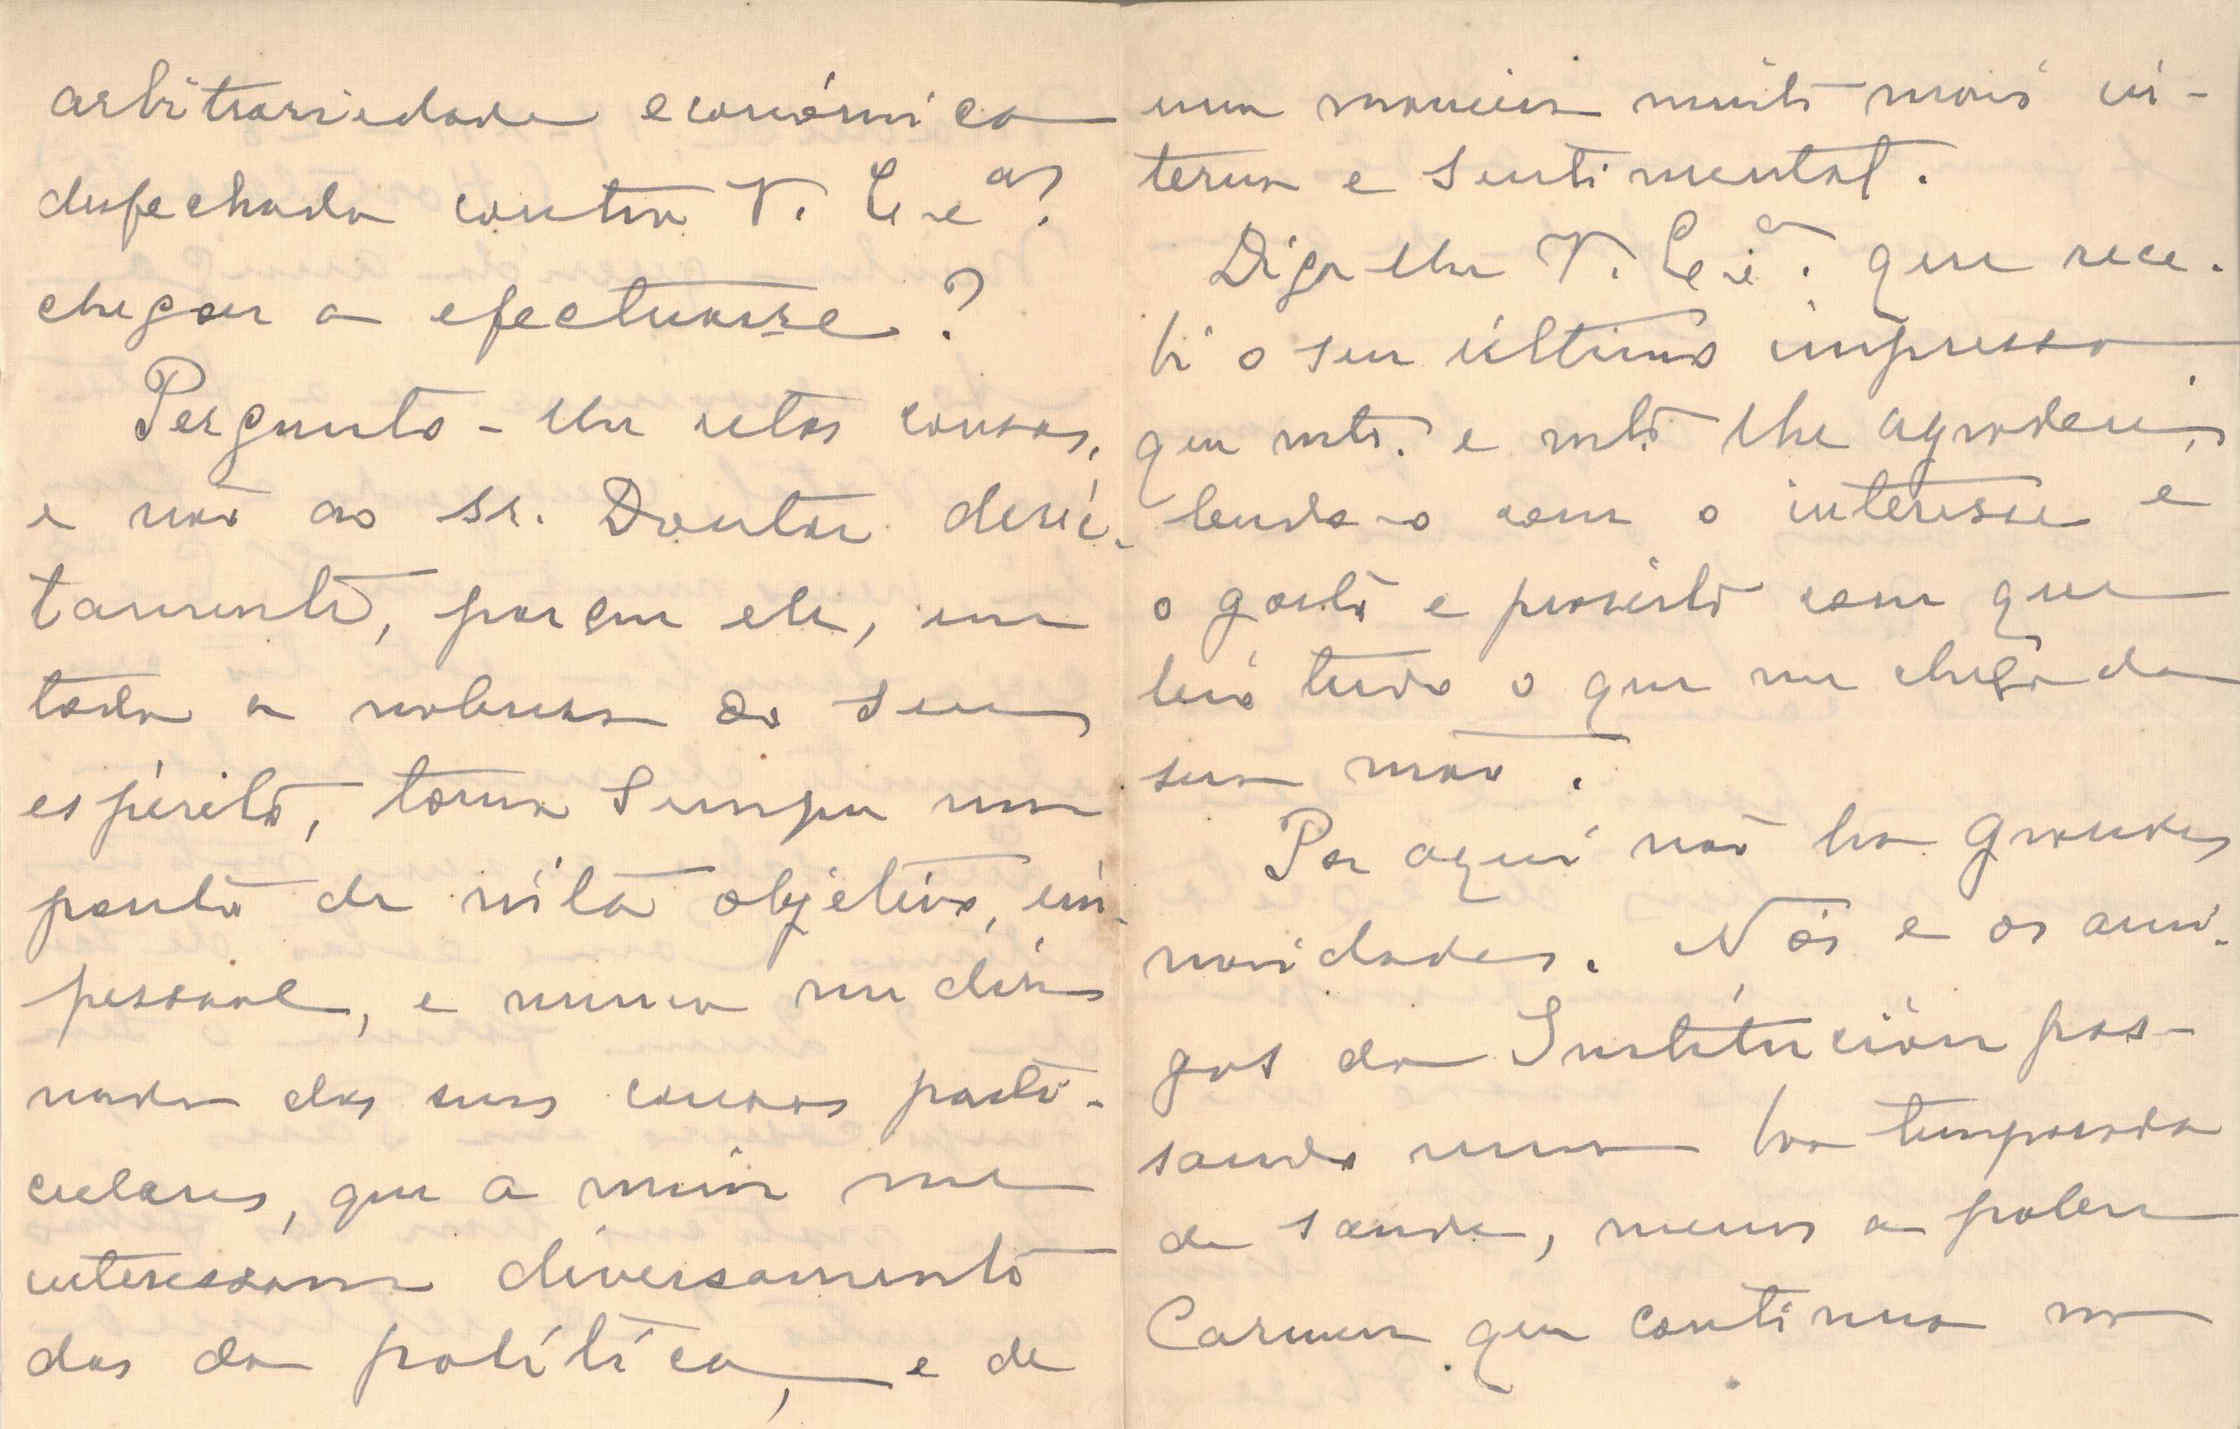 arbitrariedade económica
desfechada contra V. Exas?
chegou a efectuarse?
Pergunto-lhe estas cousas,
e não ao Sr. Doutor direi-
tamente, porque ele, em
toda a nobresa do seu
espírito, toma sempre um
ponto de vista objetivo, im-
pessoal, e nunca me diz
nada das suas cousas parti-
culares, que a mim me
interessam diversamente
das da política, e de
uma maneira muito mais in-
terna e sentimental.
Digo lhe V. Exª. que rece-
bi o seu último impresso
que mtº. e mtº. lhe agradeci,
lendo-o com o interesse e
o gosto e proveito com que
leio tudo o que me chega da
sua mão.
Por aqui não ha grandes
novidades. Nós e os ami-
gos da Institución pas-
sando uma boa temporada
de saude, menos a pobre
Carmen que continua na